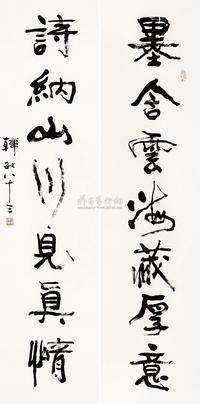 墨含雲海藏厚意
詩納山川見真情
韓敏八十三